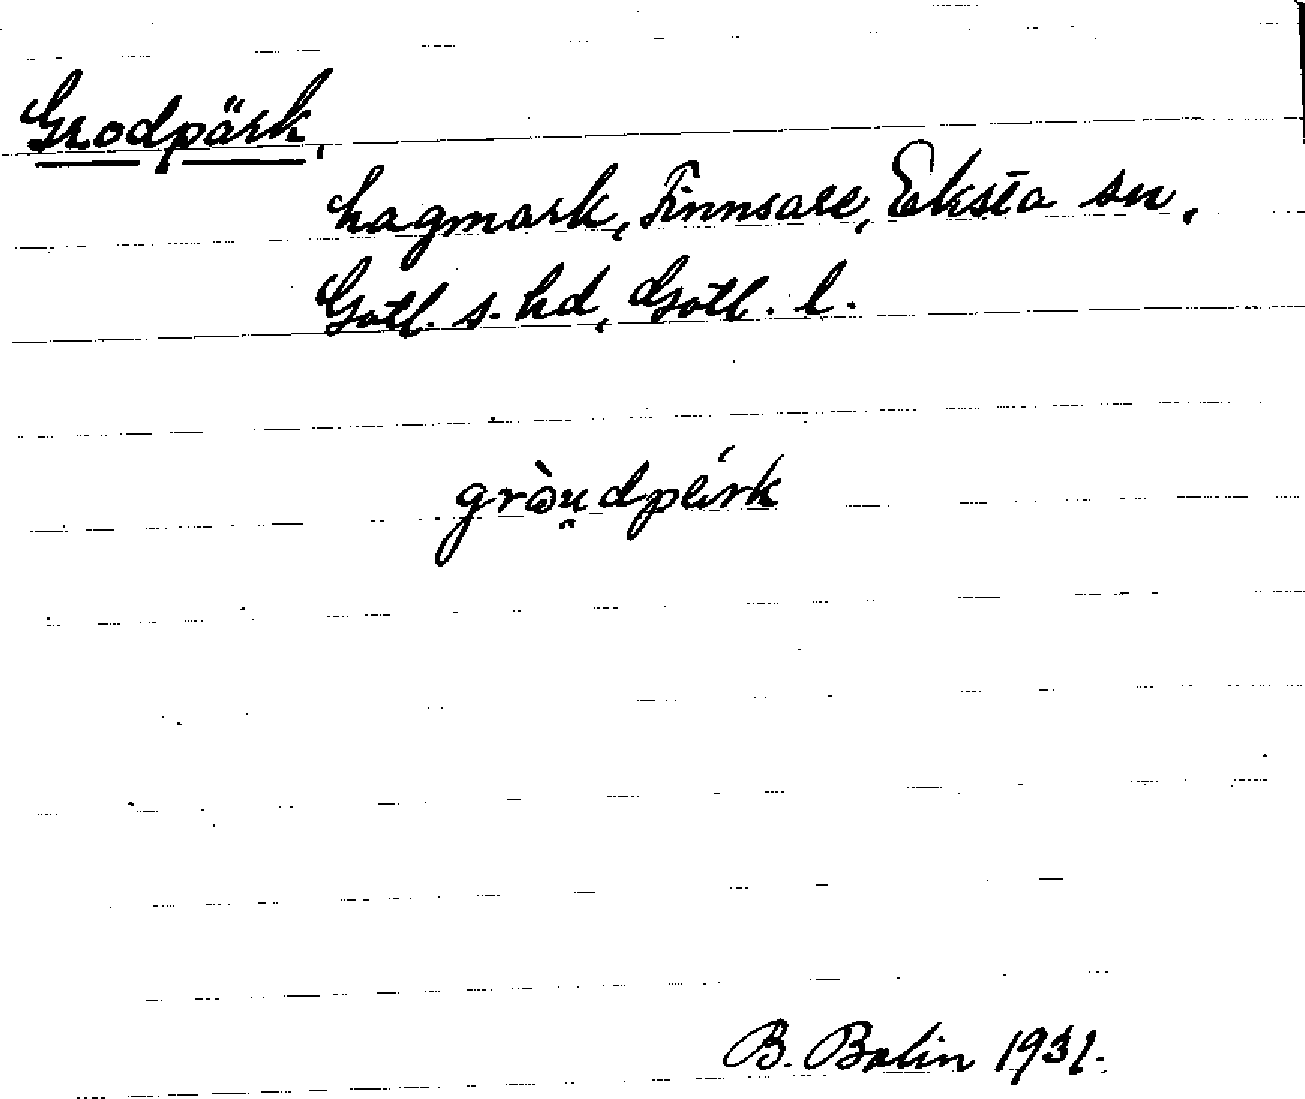 Grodpärk,
hagmark, Finnsare, Eksta sn,
Gotl. s. hd, Gotl. l.
gròu̯dpärk
B. Bolin 1931.